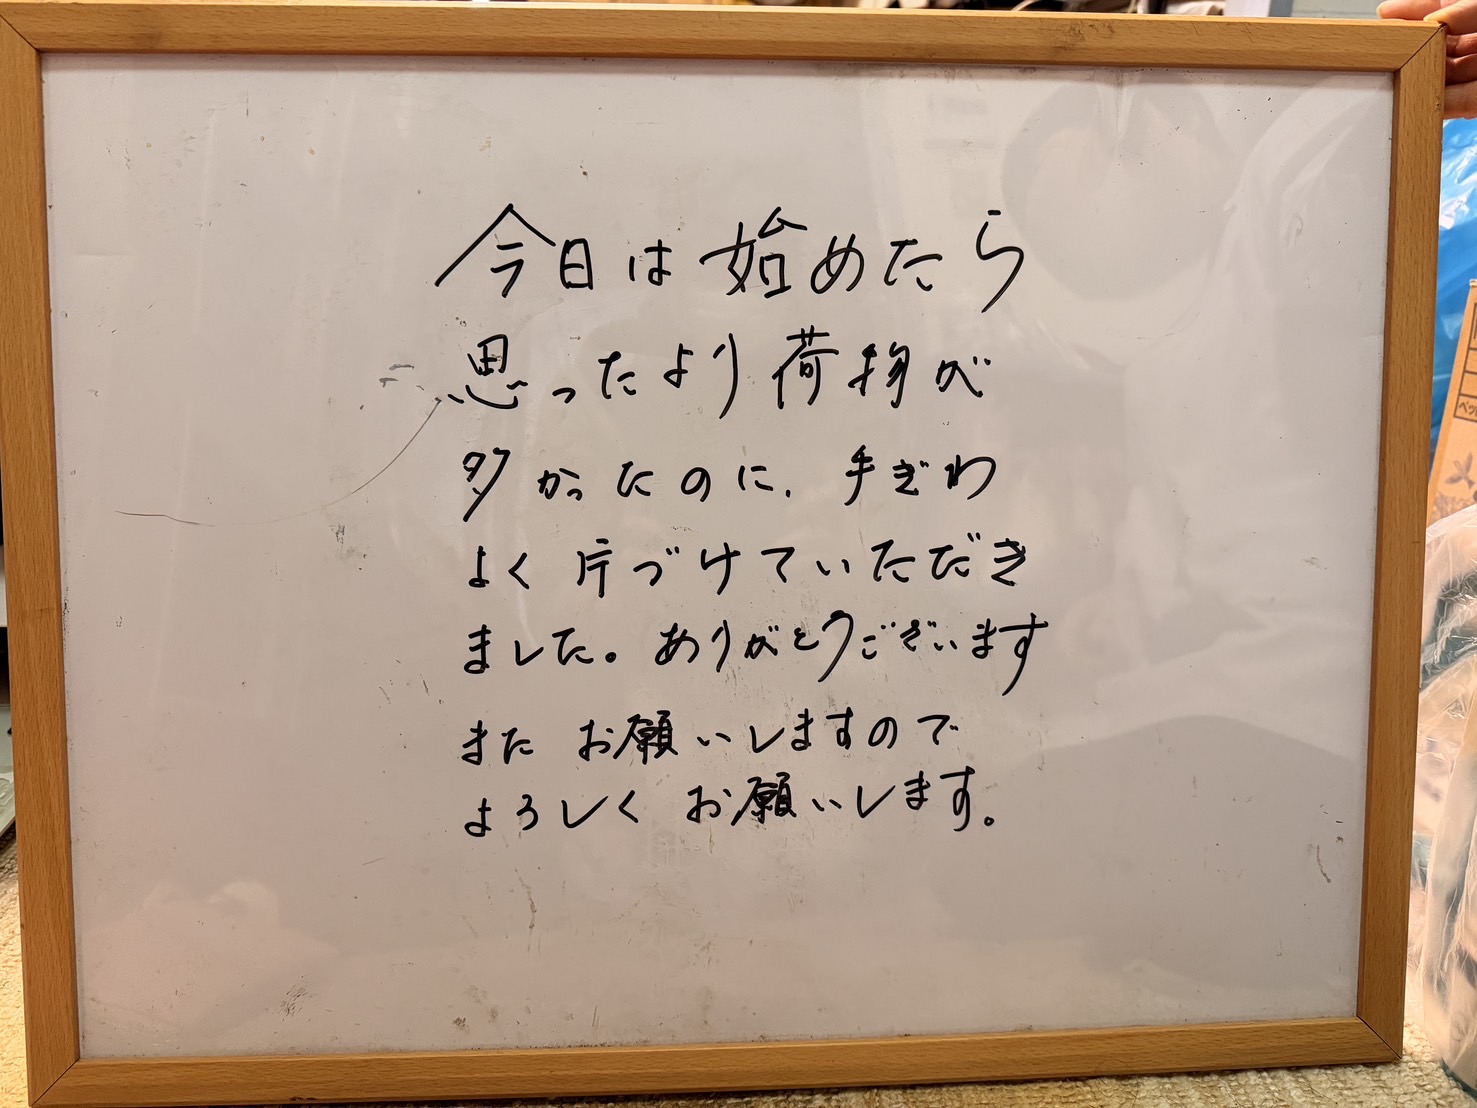 今日は始めたら
思ったより荷物が
多かったのに、手ぎわ
よく片づけていただき
ました。ありがとうございます
またお願いしますので
よろしくお願いします。